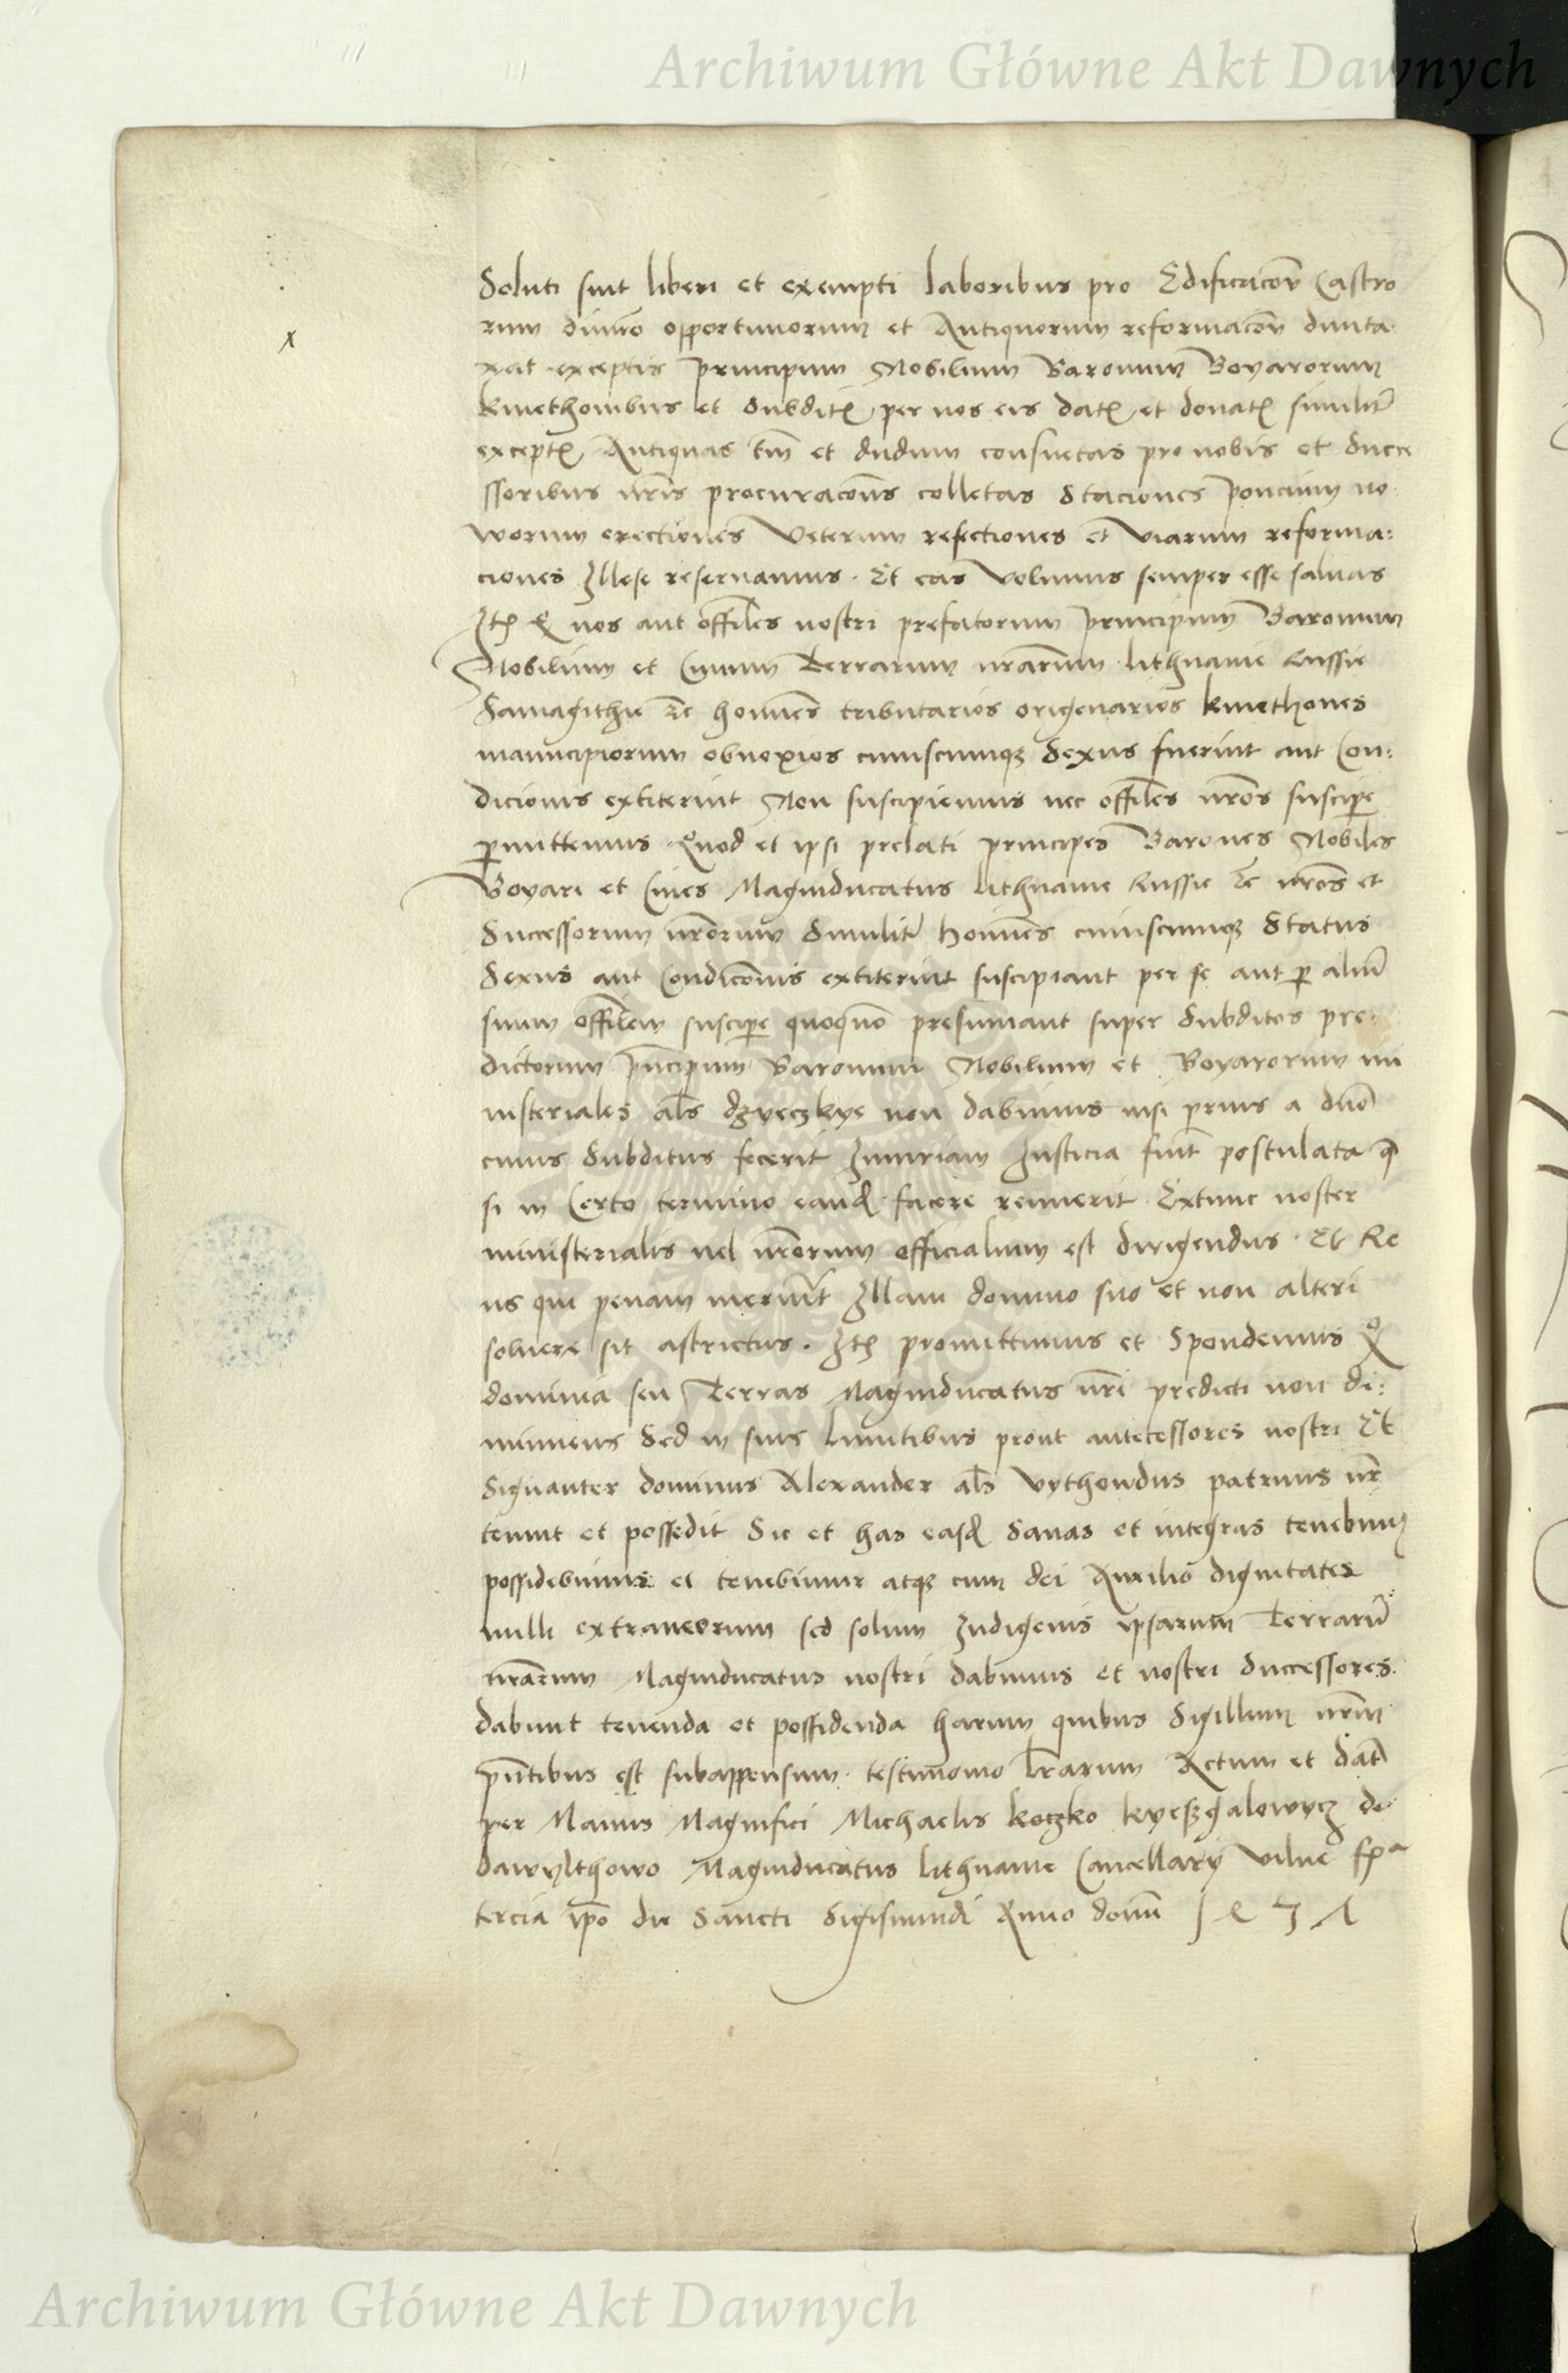 Archiwum Główne Akt Dawnych
Soluti sint liberi et exempti laboribus pro Edificacōn Castro
rum dimēo opportunorum et Antiquorum reformacōn dunta
x
xat exceptis principum Nobilium Baronum Boyarorum
kmethonibus et Subditꝭ per nos eis datꝭ et donatꝭ similitr̄
exceptꝭ Antiquas tm̄ et dudum consuetas pro nobis et Succe
ssoribus nr̄is procuracōns colletas Staciones poncium no
worum erectiones Veterum refectiones et viarum reforma:
ciones Illese reseruamus. Et eas Volumus semper esse saluas
Itꝫ ꝙ nos aut offīles nostri prefatorum principum Baronum
Nobilium et Ciuium Terrarum nr̄arum lithuanie Russie
Samagithie ꝛc̄ homīes tributarios origenarios kmethones
mancipiorum obnoxios cuiuscumqꝫ Sexus fuerint aut Con:
dicionis extiterint Non suscipiemus nec offīles nr̄os suscipe̅
ꝑmittemus Quod et ipsi prelati principes Barones Nobiles
Boyari et Ciues Magniducatus lithuanie Russie ꝛc̄ nr̄os et
Successorum nr̄orum Similitr̄ homīes cuiuscumqꝫ Status
Sexus aut Condicōnis extiterint suscipiant per se aut ꝑ aliū
suum offīlem suscipe̅ quoquō presumant super Subditos pre
dictorum pn̄cipum Baronum Nobilium et Boyarorum mi
nisteriales al̄s dzyeczkye non dabimus nisi prius a dn̄o
cuius Subditus fecerit Iniuriam Iusticia fuīt postulata q̄
si in Certo termino eandꝫ facere renuerit Extunc noster
ministerialis uel nr̄orum officialium est dirigendus Et Re
us qui penam meruīt Illam domino suo et non alteri
soluere sit astrictus. Itꝫ promittimus et Spondemus ꝙ
dominia seu Terras Magniducatus nr̄i predicti non di:
minuens Sed in suis limitibus prout antecessores nostri Et
Signanter dominus Alexander al̄s Vythowdus patruus nr̄
tenuit et possedit Sic et has easdꝫ Sanas et integras tenebimꝰ
possidebimus et tenebimur atqꝫ cum dei Auxilio dignitates
nulli extraneorum sed solum Indigenis ipsarum Terrarū
nr̄arum Magniducatus nostri dabimus et nostri Successores
dabunt tenenda et possidenda harum quibus Sigillum nr̄m
pn̄tibus est subappensum testimonio lr̄arum Actum et dat̄
per Manus Magnifici Michaelis koczko kyeszgalowycz de
dawylthowo Magniducatus lithuanie Cancellary Vilne fr̄ᵃ
tercia ipō die Sancti Sigismundi Anno domī
Archiwum Główne Akt Dawnych